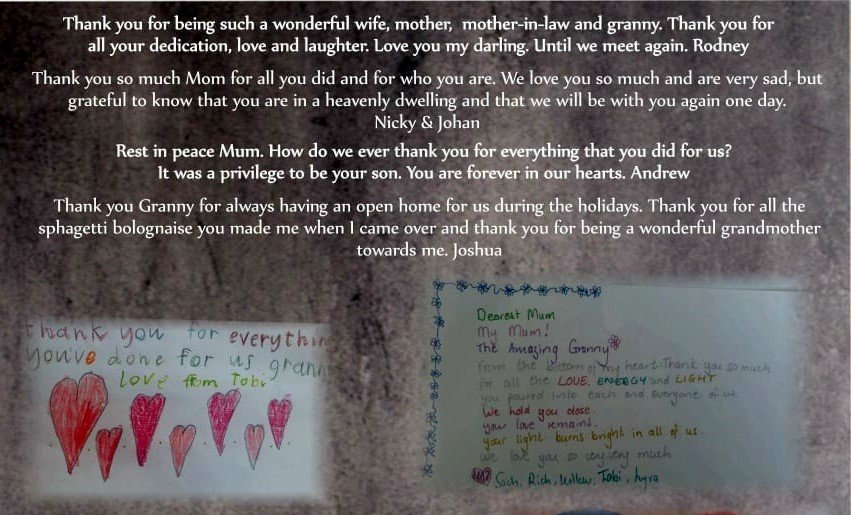 Thank you for being such a wonderful wife, mother, mother-in-law and granny. Thank you for
all your dedication, love and laughter. Love you my darling. Until we meet again. Rodney
Thank you so much Mom for all you did and for who you are. We love you so much and are very sad, but
grateful to know that you are in a heavenly dwelling and that we will be with you again one day.
Nicky & Johan
Rest in peace Mum. How do we ever thank you for everything that you did for us?
It was a privilege to be your son. You are forever in our hearts. Andrew
Thank you Granny for always having an open home for us during the holidays. Thank you for all the
sphagetti bolognaise you made me when I came over and thank you for being a wonderful grandmother
towards me. Joshua
thank you for everythin
you've done for us grann
love from Tobi
Dearest Mum
My Mum!
The Amazing Granny
From the bottom of my heart. Thank you so much
for all the LOVE, ENERGY and LIGHT
you poured into each and everyone of us.
We hold you close.
your love remains.
your light burns bright in all of us
we love you so very, very much
Rich, Willow, Tobi,